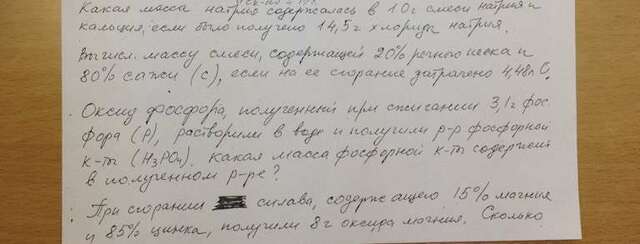 Какая масса натрия содержалась в 10г смеси натрия и
кальция, если было получено 14,5г хлорида натрия.
Вычисл. массу смеси, содержащей 20% речного песка и
80% сажи (С), если на ее сгорание затрачено 4,48л О₂
. Оксид фосфора, полученный при сжигании 3,1г фос
фора (Р), растворили в воде и получили р-р фосфорной
к-ты (H₃PO₄). Какая масса фосфорной к-ты содержит
в полученном р-ре?
. При сгорании сплава, содержащего 15% магния
и 85% цинка, получили 8г оксида магния. Сколько